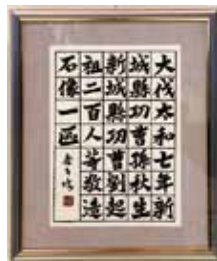 大伐太和七年新
城縣功曹孫秋生
新城縣功曹劉起
祖二百人等敬造
石像一區